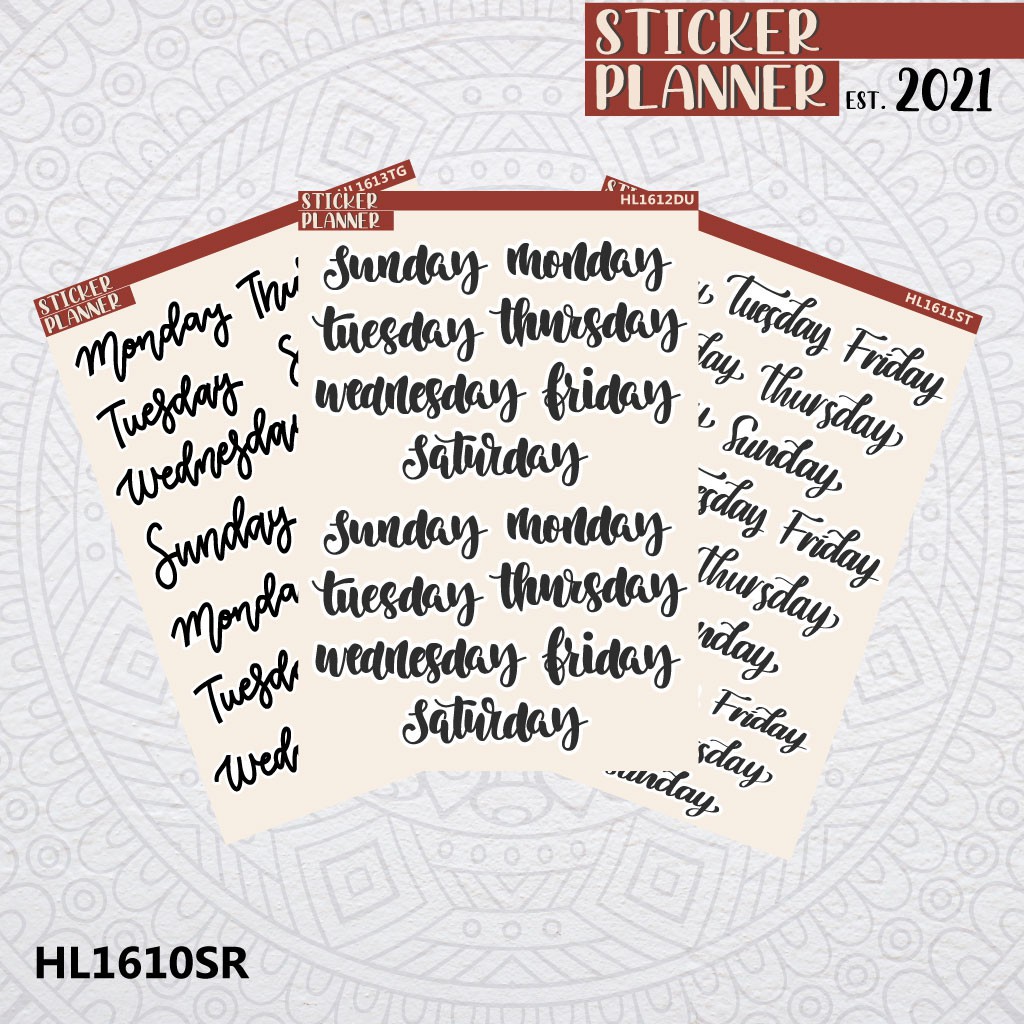 STICKER
PLANNER EST. 2021
1613TG
STICKER
PLANNER
Monday
Tuesday
Wednesday
Sunday
STICKER
PLANNER
HL1612DU
sunday monday
tuesday thursday
wednesday friday
saturday
sunday monday
tuesday thursday
wednesday friday
saturday
HL1611ST
Tuesday Friday
thursday
Sunday
Friday
thursday
Friday
sunday
HL1610SR